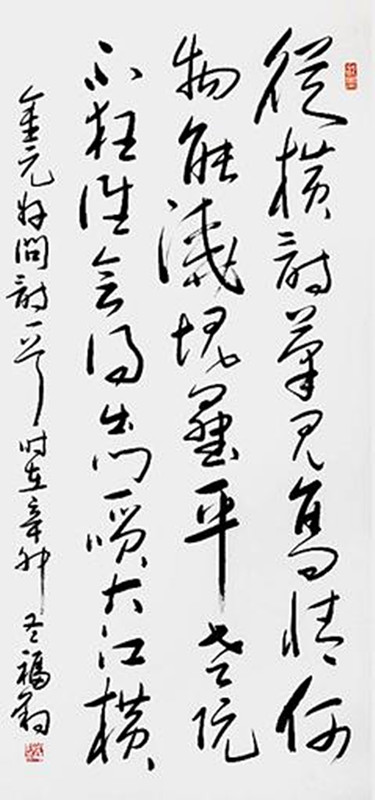 從橫詩筆見高情何
物能澆塊壘平老阮
不狂誰會得出門一咲大江横
金元好問詩一首时在辛卯冬福